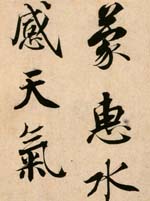 蒙惠水
感天氣